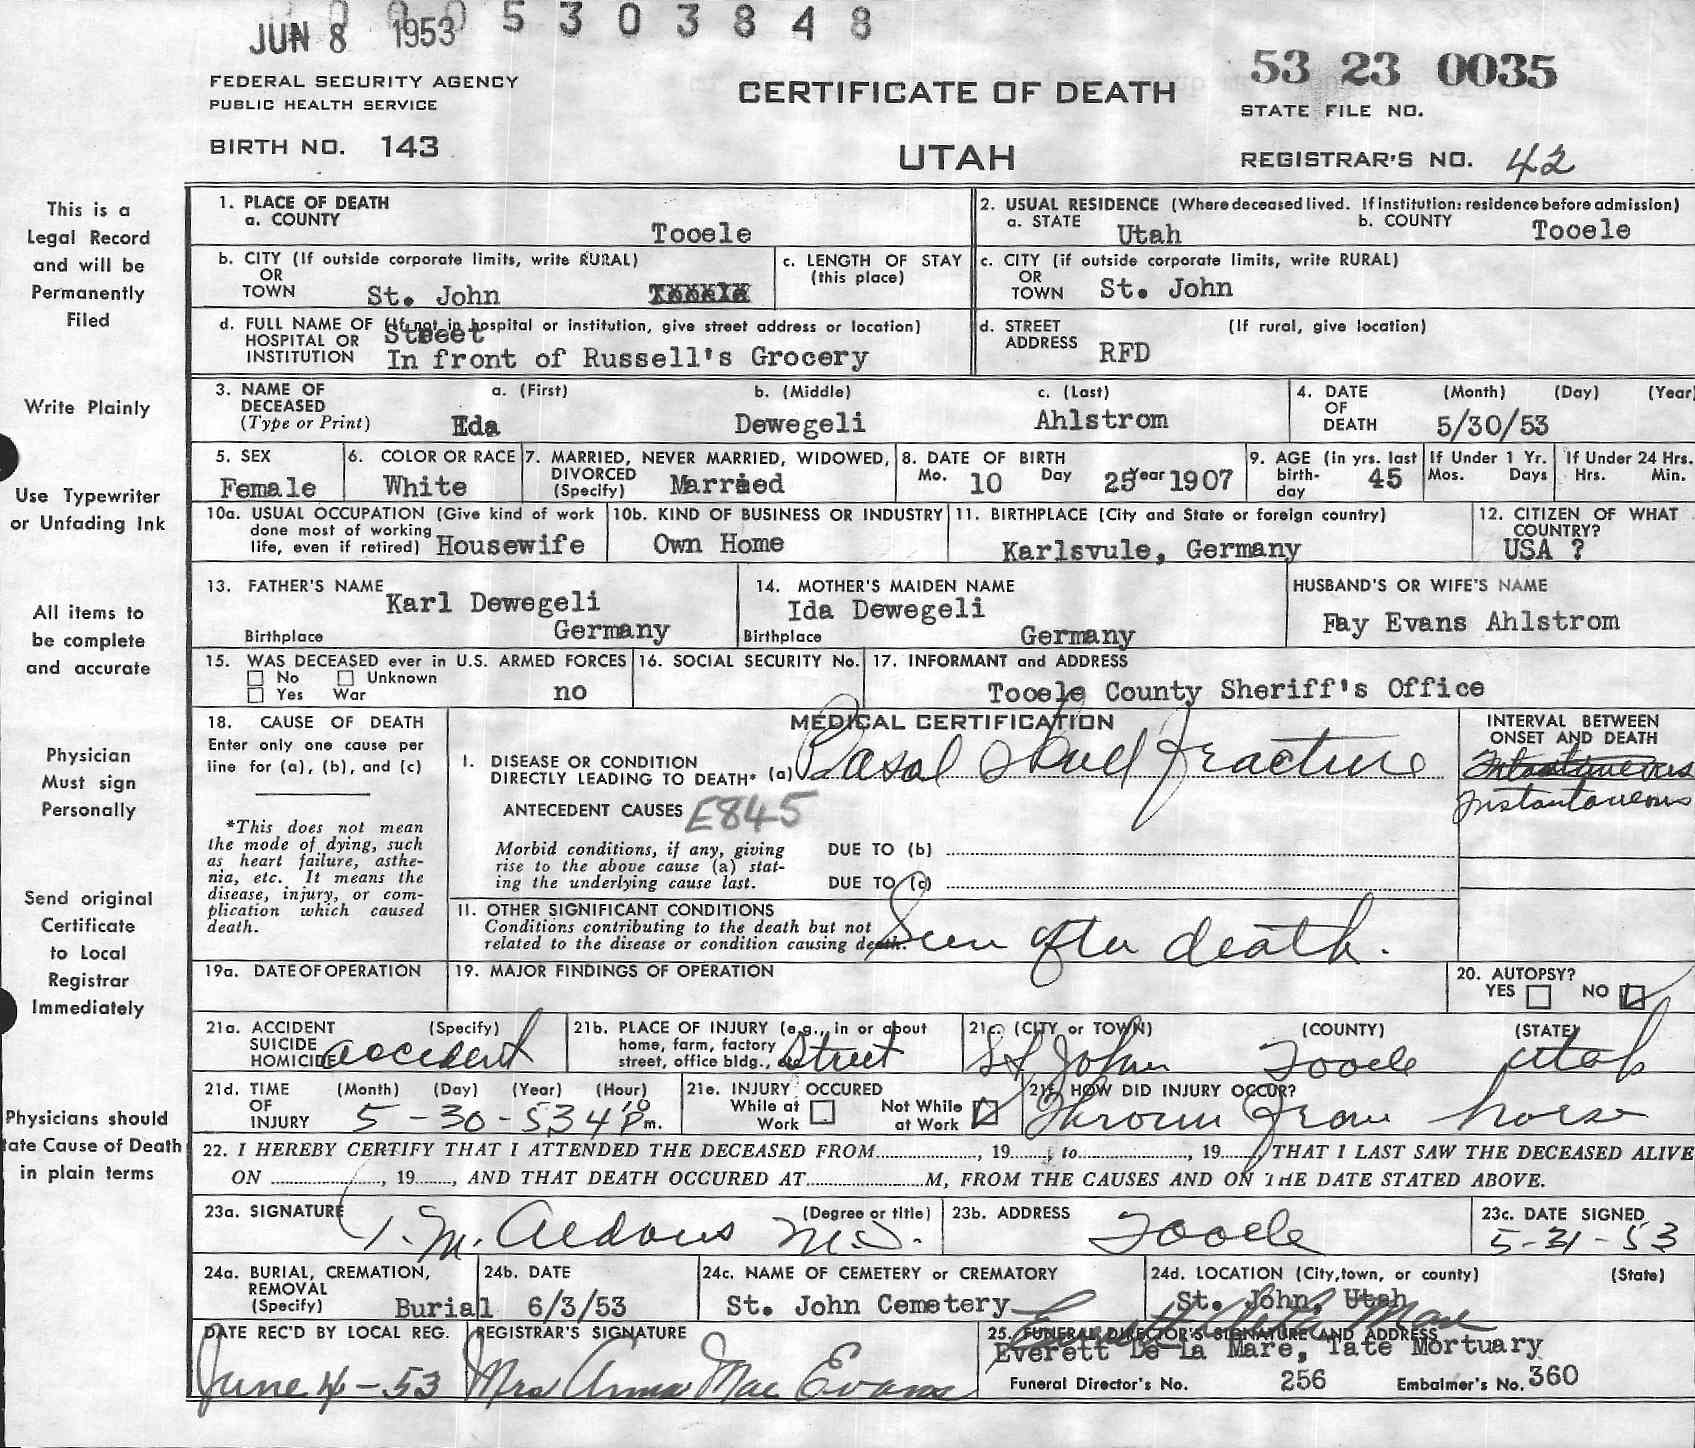 JUN 8 1953 5 3 0 3 8 4 8
FEDERAL SECURITY AGENCY
PUBLIC HEALTH SERVICE
BIRTH NO. 143
CERTIFICATE OF DEATH
UTAH
53 23 0035
STATE FILE NO.
REGISTRAR'S NO. 42
This is a
Legal Record
and will be
Permanently
Filed
Write Plainly
Use Typewriter
or Unfading Ink
All items to
be complete
and accurate
Physician
Must sign
Personally
Send original
Certificate
to Local
Registrar
Immediately
Physicians should
tate Cause of Death
in plain terms
1. PLACE OF DEATH
a. COUNTY
Tooele
2. USUAL RESIDENCE (Where deceased lived. If institution: residence before admission)
a. STATE Utah b. COUNTY Tooele
b. CITY (If outside corporate limits, write RURAL)
OR
TOWN St. John
c. LENGTH OF STAY
(this place)
c. CITY (if outside corporate limits, write RURAL)
OR
TOWN St. John
d. FULL NAME OF (If not in hospital or institution, give street address or location)
HOSPITAL OR Street
INSTITUTION In front of Russell's Grocery
d. STREET (If rural, give location)
ADDRESS RFD
3. NAME OF DECEASED
(Type or Print)
a. (First) b. (Middle) c. (Last)
Eda Dewegeli Ahlstrom
4. DATE OF DEATH (Month) (Day) (Year)
5/30/53
5. SEX
Female
6. COLOR OR RACE
White
7. MARRIED, NEVER MARRIED, WIDOWED,
DIVORCED
(Specify) Married
8. DATE OF BIRTH
Mo. 10 Day 25 Year 1907
9. AGE (in yrs. last
birth-
day 45
If Under 1 Yr.
Mos. Days
If Under 24 Hrs.
Hrs. Min.
10a. USUAL OCCUPATION (Give kind of work
done most of working
life, even if retired) Housewife
10b. KIND OF BUSINESS OR INDUSTRY
Own Home
11. BIRTHPLACE (City and State or foreign country)
Karlsvule, Germany
12. CITIZEN OF WHAT
COUNTRY?
USA ?
13. FATHER'S NAME
Karl Dewegeli
Birthplace Germany
14. MOTHER'S MAIDEN NAME
Ida Dewegeli
Birthplace Germany
HUSBAND'S OR WIFE'S NAME
Fay Evans Ahlstrom
15. WAS DECEASED ever in U.S. ARMED FORCES
No Unknown
Yes War no
16. SOCIAL SECURITY No.
17. INFORMANT and ADDRESS
Tooele County Sheriff's Office
18. CAUSE OF DEATH
Enter only one cause per
line for (a), (b), and (c)
*This does not mean
the mode of dying, such
as heart failure, asthe-
nia, etc. It means the
disease, injury, or com-
plication which caused
death.
MEDICAL CERTIFICATION
I. DISEASE OR CONDITION
DIRECTLY LEADING TO DEATH* (a) Basal Skull fracture
ANTECEDENT CAUSES E845
Morbid conditions, if any, giving
rise to the above cause (a) stat-
ing the underlying cause last.
DUE TO (b)
DUE TO (c)
INTERVAL BETWEEN
ONSET AND DEATH
Instantaneous
Instantaneous
II. OTHER SIGNIFICANT CONDITIONS
Conditions contributing to the death but not
related to the disease or condition causing death.
Seen after death.
19a. DATE OF OPERATION
19. MAJOR FINDINGS OF OPERATION
20. AUTOPSY?
YES NO
21a. ACCIDENT (Specify)
SUICIDE
HOMICIDE accident
21b. PLACE OF INJURY (e.g., in or about
home, farm, factory
street, office bldg., etc. Street
21c. (CITY or TOWN) (COUNTY) (STATE)
St John Tooele Utah
21d. TIME (Month) (Day) (Year) (Hour)
OF
INJURY 5-30-53 4 10 P m.
21e. INJURY OCCURED
While at Work Not While at Work
21f. HOW DID INJURY OCCUR?
Thrown from horse
22. I HEREBY CERTIFY THAT I ATTENDED THE DECEASED FROM............, 19......, to............, 19......, THAT I LAST SAW THE DECEASED ALIVE
ON ............, 19......, AND THAT DEATH OCCURED AT............M, FROM THE CAUSES AND ON THE DATE STATED ABOVE.
23a. SIGNATURE (Degree or title)
T. M. Aldous M.D.
23b. ADDRESS
Tooele
23c. DATE SIGNED
5-31-53
24a. BURIAL, CREMATION,
REMOVAL
(Specify) Burial
24b. DATE
6/3/53
24c. NAME OF CEMETERY or CREMATORY
St. John Cemetery
24d. LOCATION (City, town, or county) (State)
St. John, Utah
DATE REC'D BY LOCAL REG.
June 4-53
REGISTRAR'S SIGNATURE
Mrs Anna Mae Evans
25. FUNERAL DIRECTOR'S SIGNATURE AND ADDRESS
Everett De La Mare
Everett De La Mare, Tate Mortuary
Funeral Director's No. 256 Embalmer's No. 360